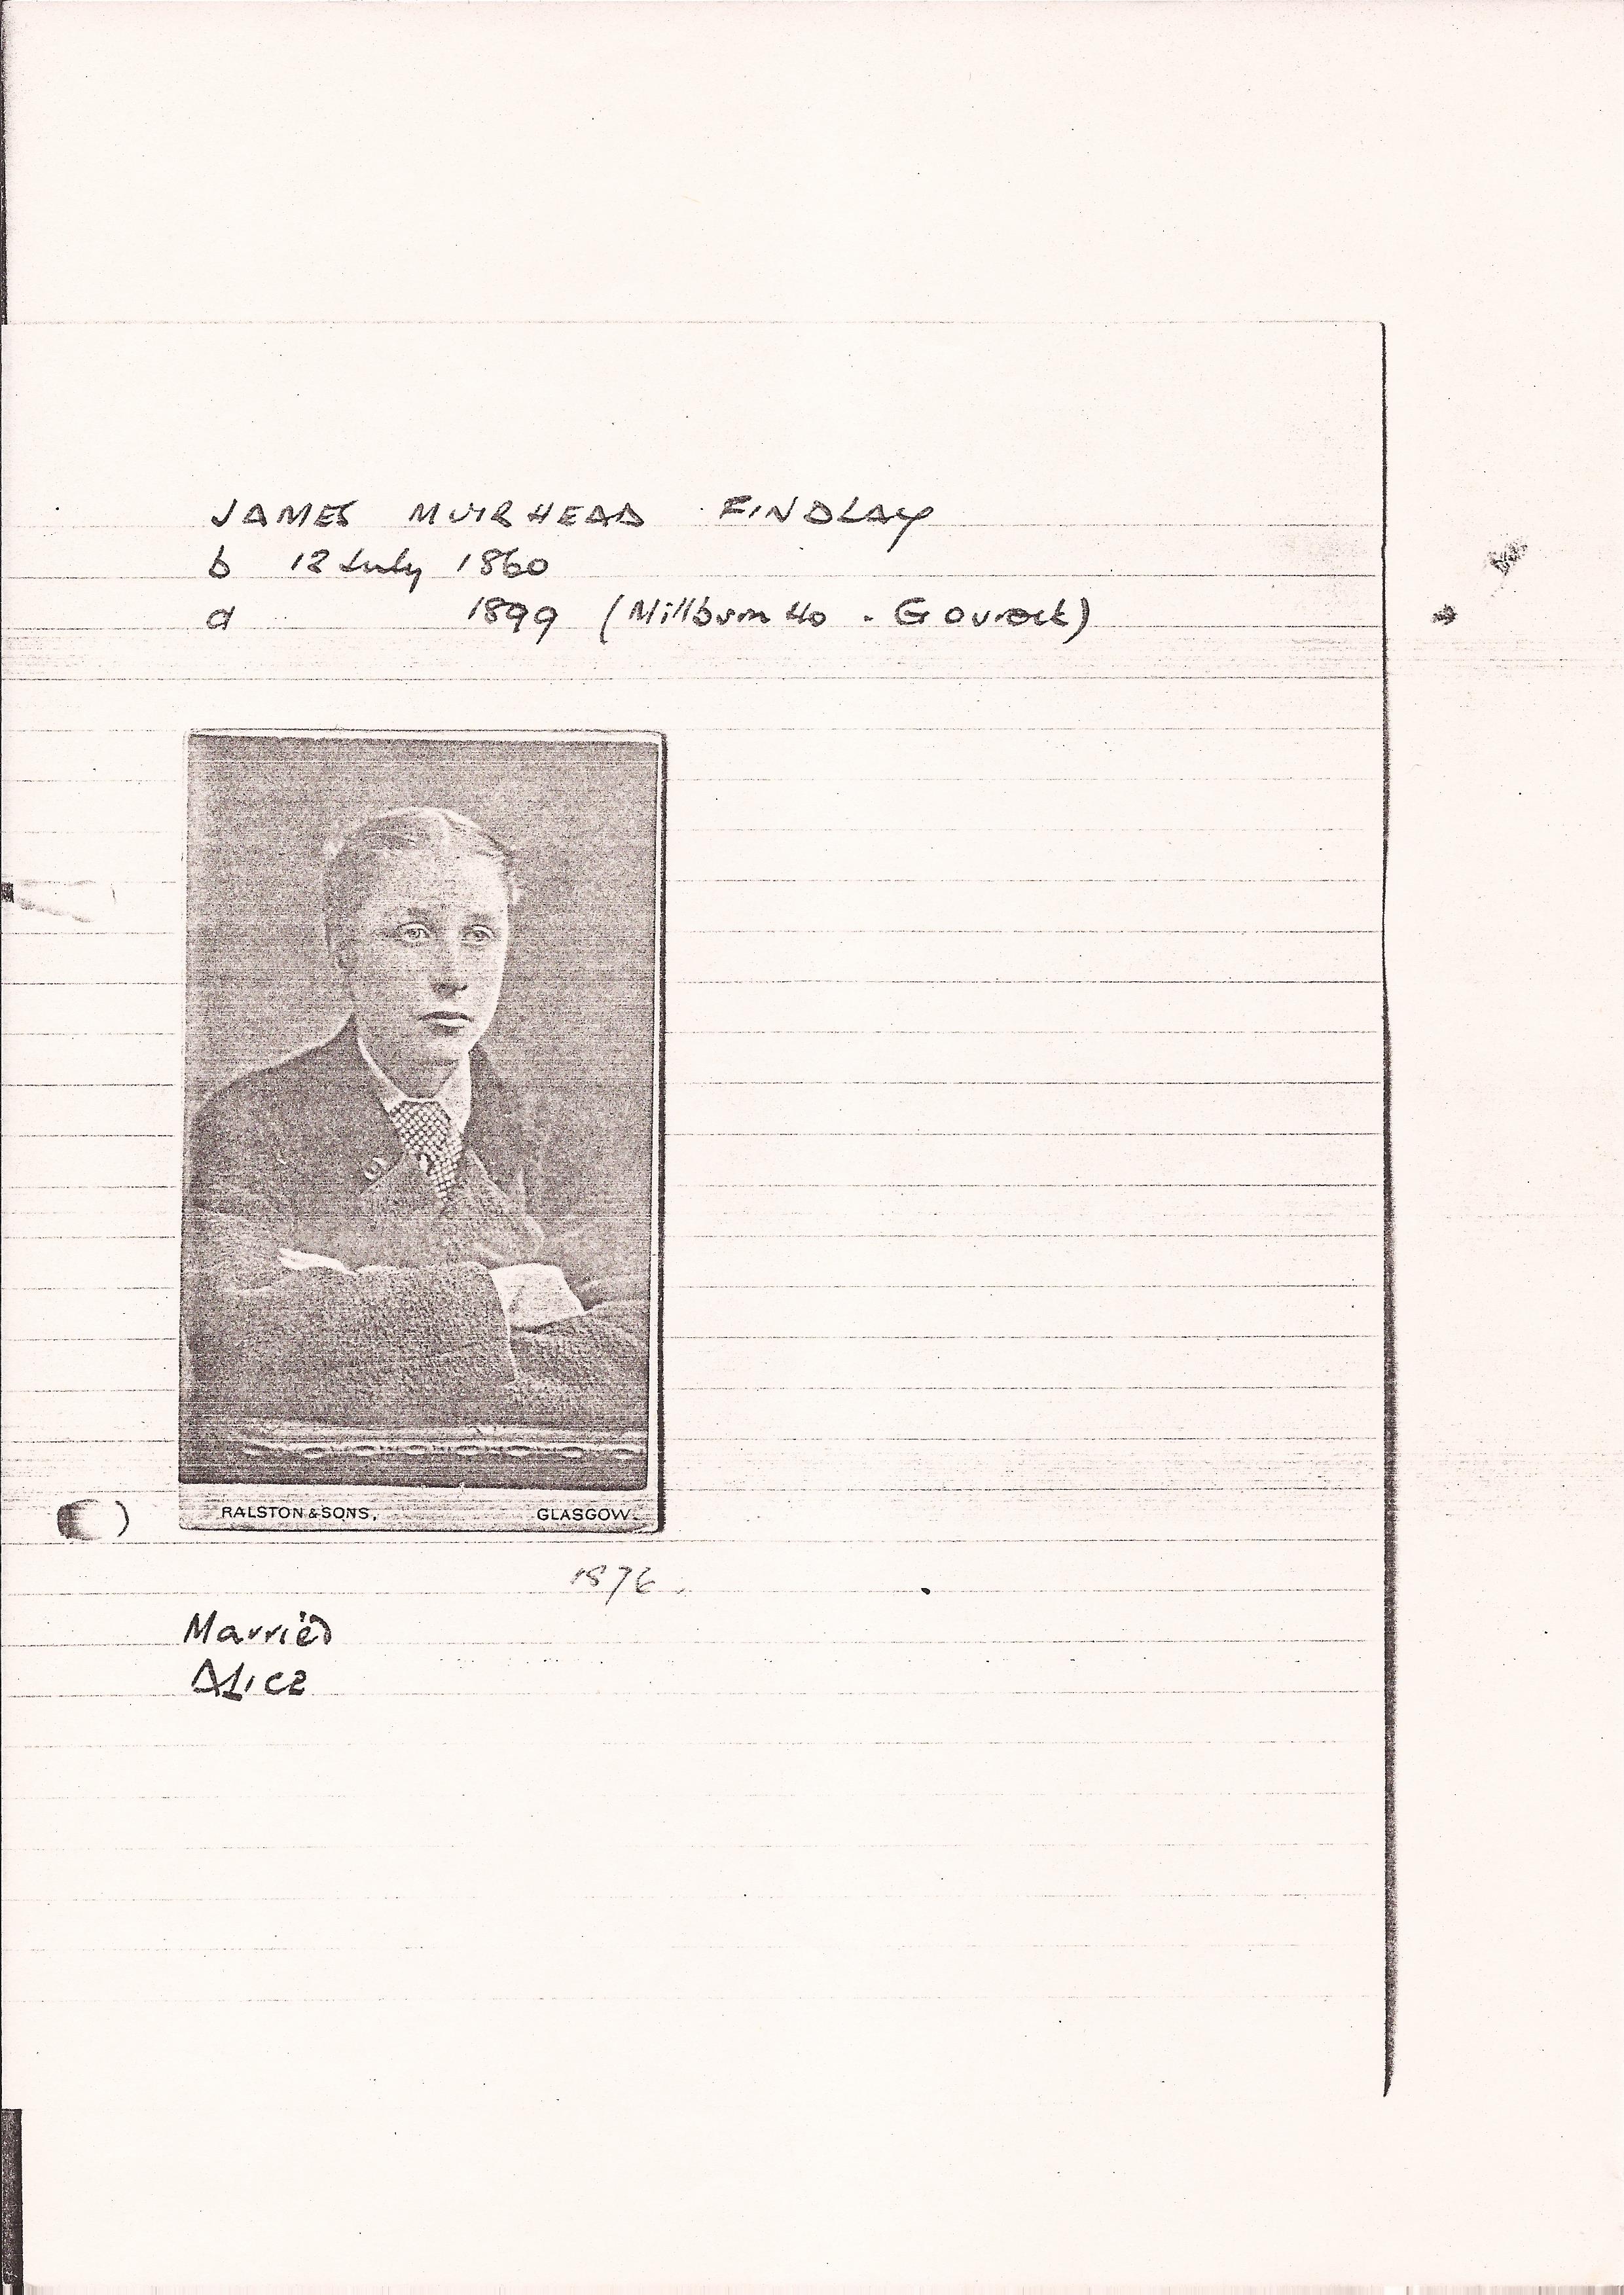 JAMES MUIRHEAD FINDLAY
b 12 July 1860
d 1899 (Millburn Ho - Gourock)
RALSTON & SONS, GLASGOW.
1876
Married
Alice